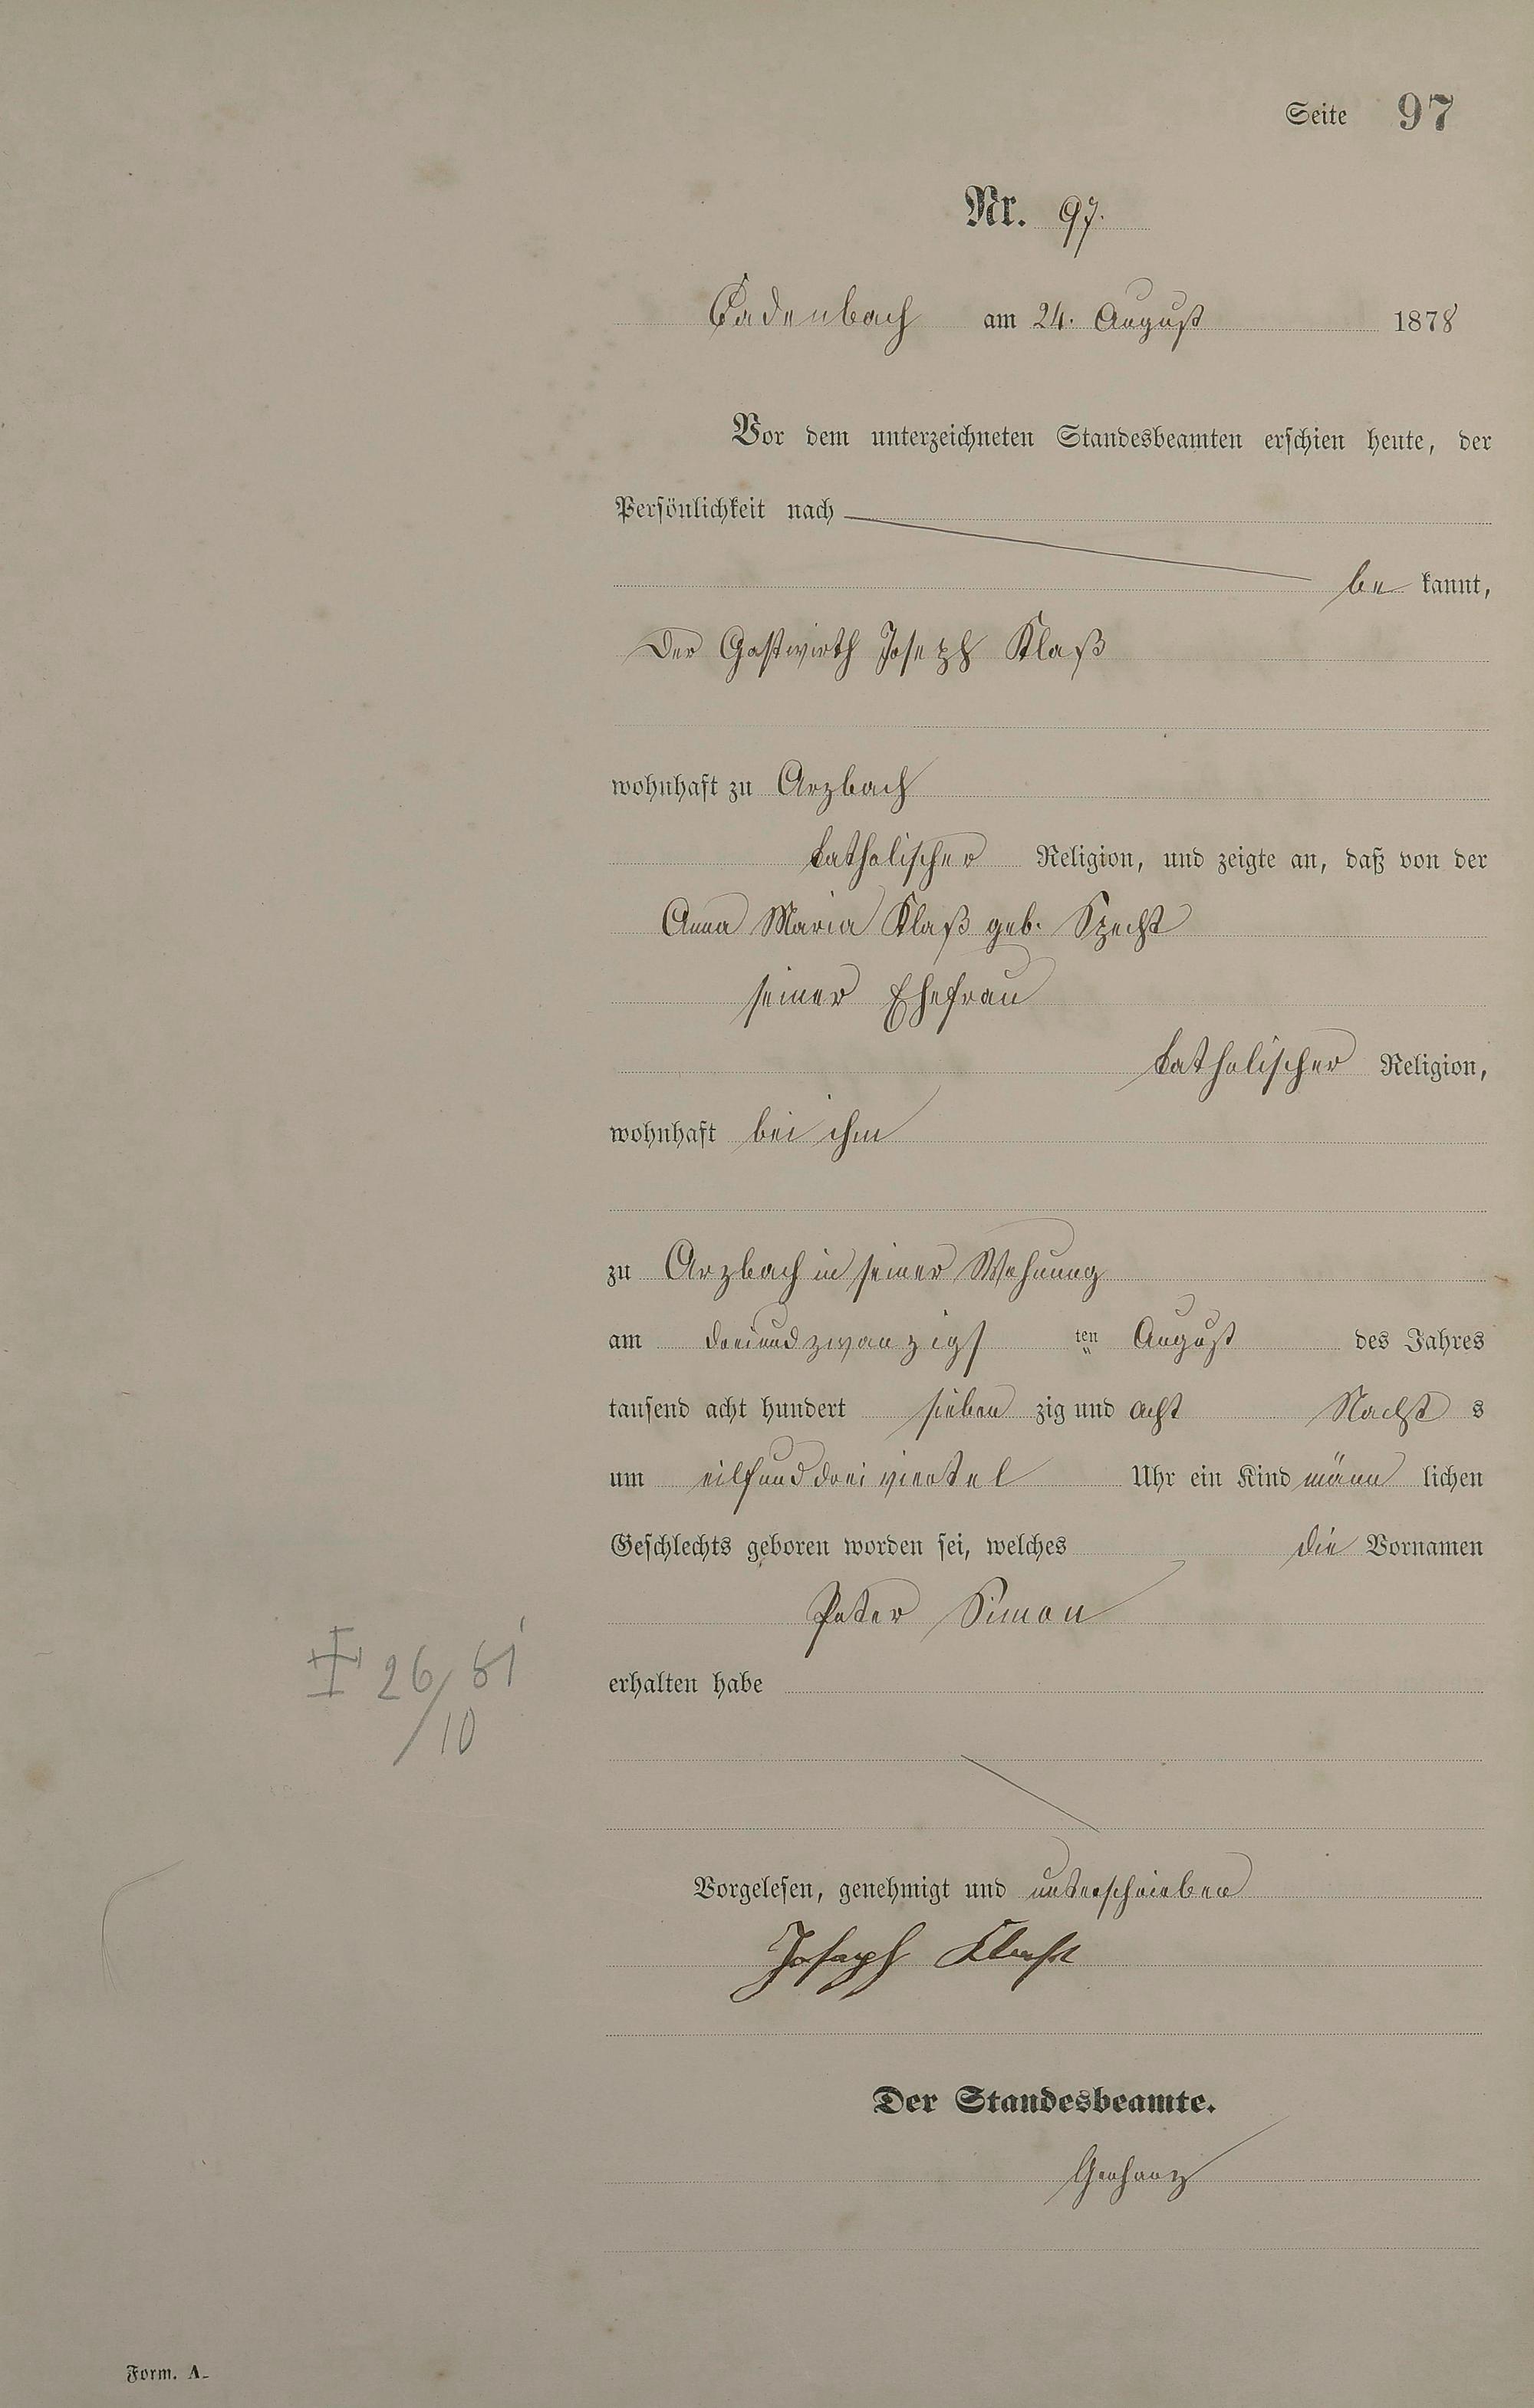 Seite 97
Nr. 97.
Cadenbach am 24. August 1878
Vor dem unterzeichneten Standesbeamten erschien heute, der
Persönlichkeit nach
be kannt,
Der Gastwirth Joseph Klaß
wohnhaft zu Arzbach
katholischer Religion, und zeigte an, daß von der
Anna Maria Klaß geb. Specht
seiner Ehefrau
katholischer Religion,
wohnhaft bei ihm
zu Arzbach in seiner Wohnung
am dreiundzwanzigs ten August des Jahres
tausend acht hundert sieben zig und acht Nacht s
um eilfunddreiviertel Uhr ein Kind männ lichen
Geschlechts geboren worden sei, welches die Vornamen
Peter Simon
erhalten habe
26/10 61
Vorgelesen, genehmigt und unterschrieben
Joseph Klaß
Der Standesbeamte.
Gerharz
Form. A.